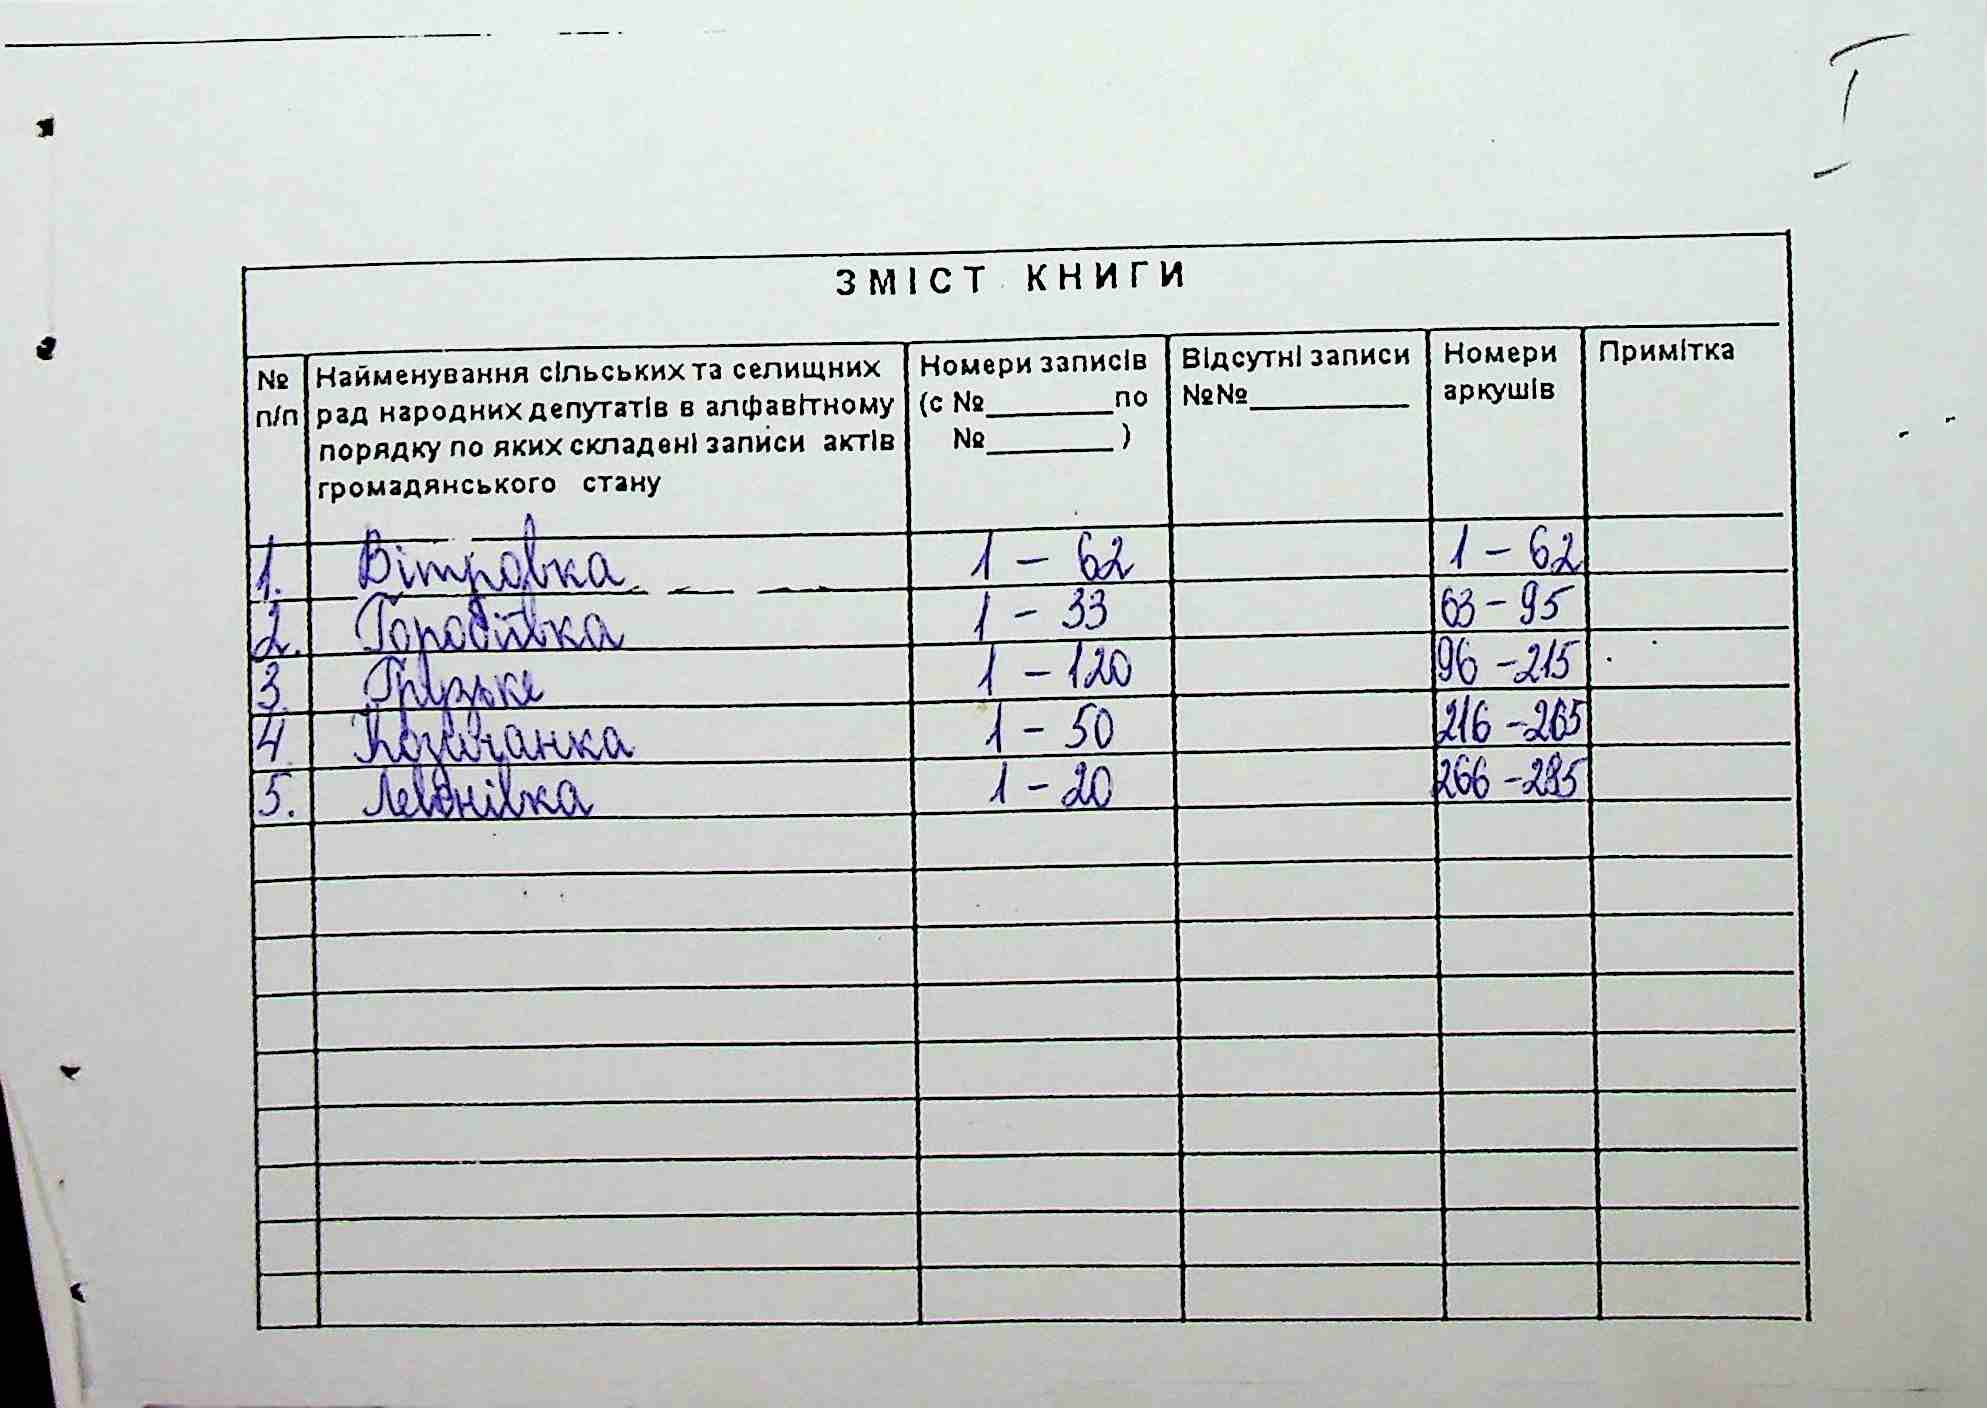 I
ЗМІСТ КНИГИ
№ п/п
Найменування сільських та селищних
рад народних депутатів в алфавітному
порядку по яких складені записи актів
громадянського стану
Номери записів
(с №________по
№________)
Відсутні записи
№№__________
Номери
аркушів
Примітка
1. Вітровка 1 – 62 1 – 62
2. Городіївка 1 – 33 63 – 95
3. Грузьке 1 – 120 96 – 215
4 Козачанка 1 – 50 216 – 265
5. Левонівка 1 – 20 266 – 285